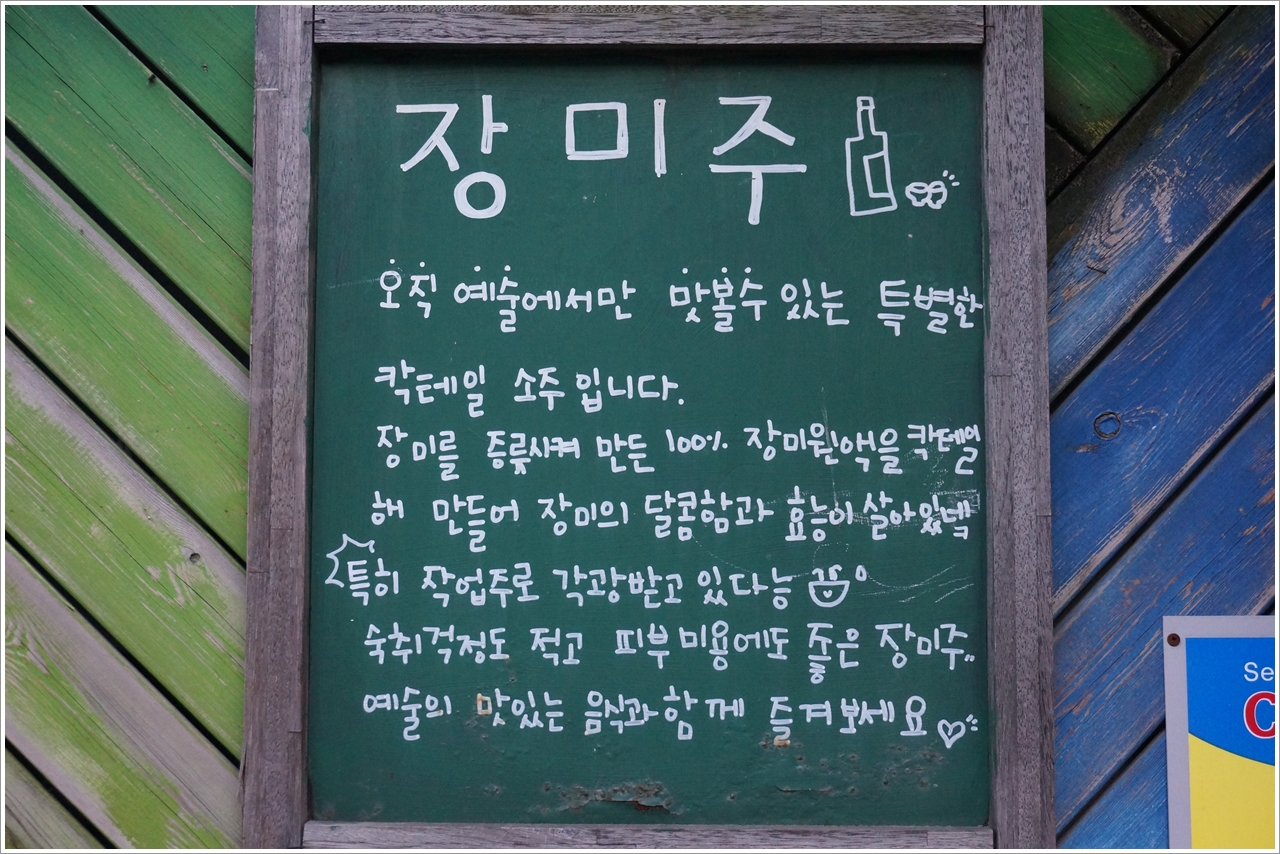 장미주
오직 예술에서만 맛볼수 있는 특별한
칵테일 소주입니다.
장미를 증류시켜 만든 100% 장미원액을 칵테일
해 만들어 장미의 달콤함과 효능이 살아있답
특히 작업주로 각광받고 있다능
숙취걱정도 적고 피부미용에도 좋은 장미주..
예술의 맛있는 음식과 함께 즐겨보세요
Se
C